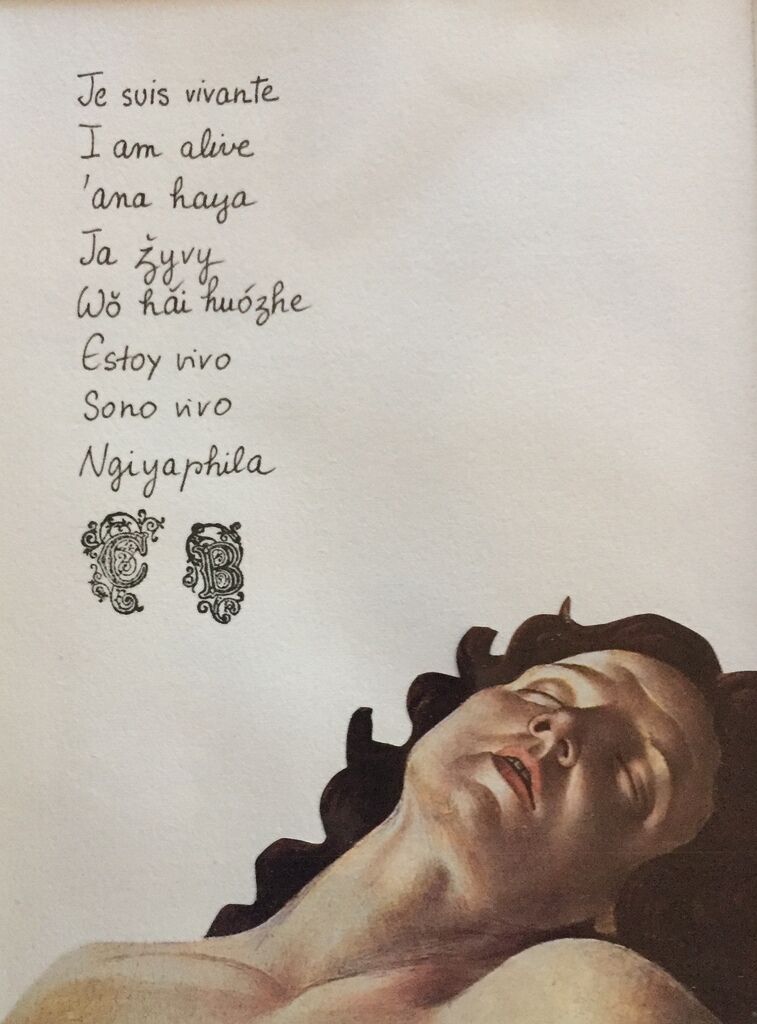 Je suis vivante
I am alive
'ana haya
Ja žyvy
Wǒ hái huózhe
Estoy vivo
Sono vivo
Ngiyaphila
C B